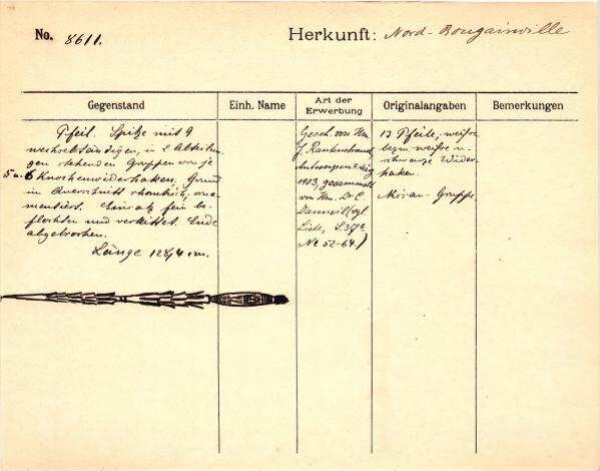 No. 8611.
Herkunft: Nord-Bougainville
Gegenstand
Einh. Name
Art der Erwerbung
Originalangaben
Bemerkungen
Pfeil. Spitze mit 9
wechselständigen, in 2 Abteilun-
gen stehenden Gruppen von je
5 u. 6 Knochenwiderhaken. Grund
im Querschnitt rhombisch, orna-
mentiert. Einsatz fein be-
flochten und verkittet. Ende
abgebrochen.
Länge 128,4 cm.
Gesch. von Hrn
J.
1903, gesammelt
von Hrn. Dr E.
Liste, S.
No 52-64)
13 Pfeile, weisse
bezw. weisse u.
schwarze Wider-
haken.
Gruppe